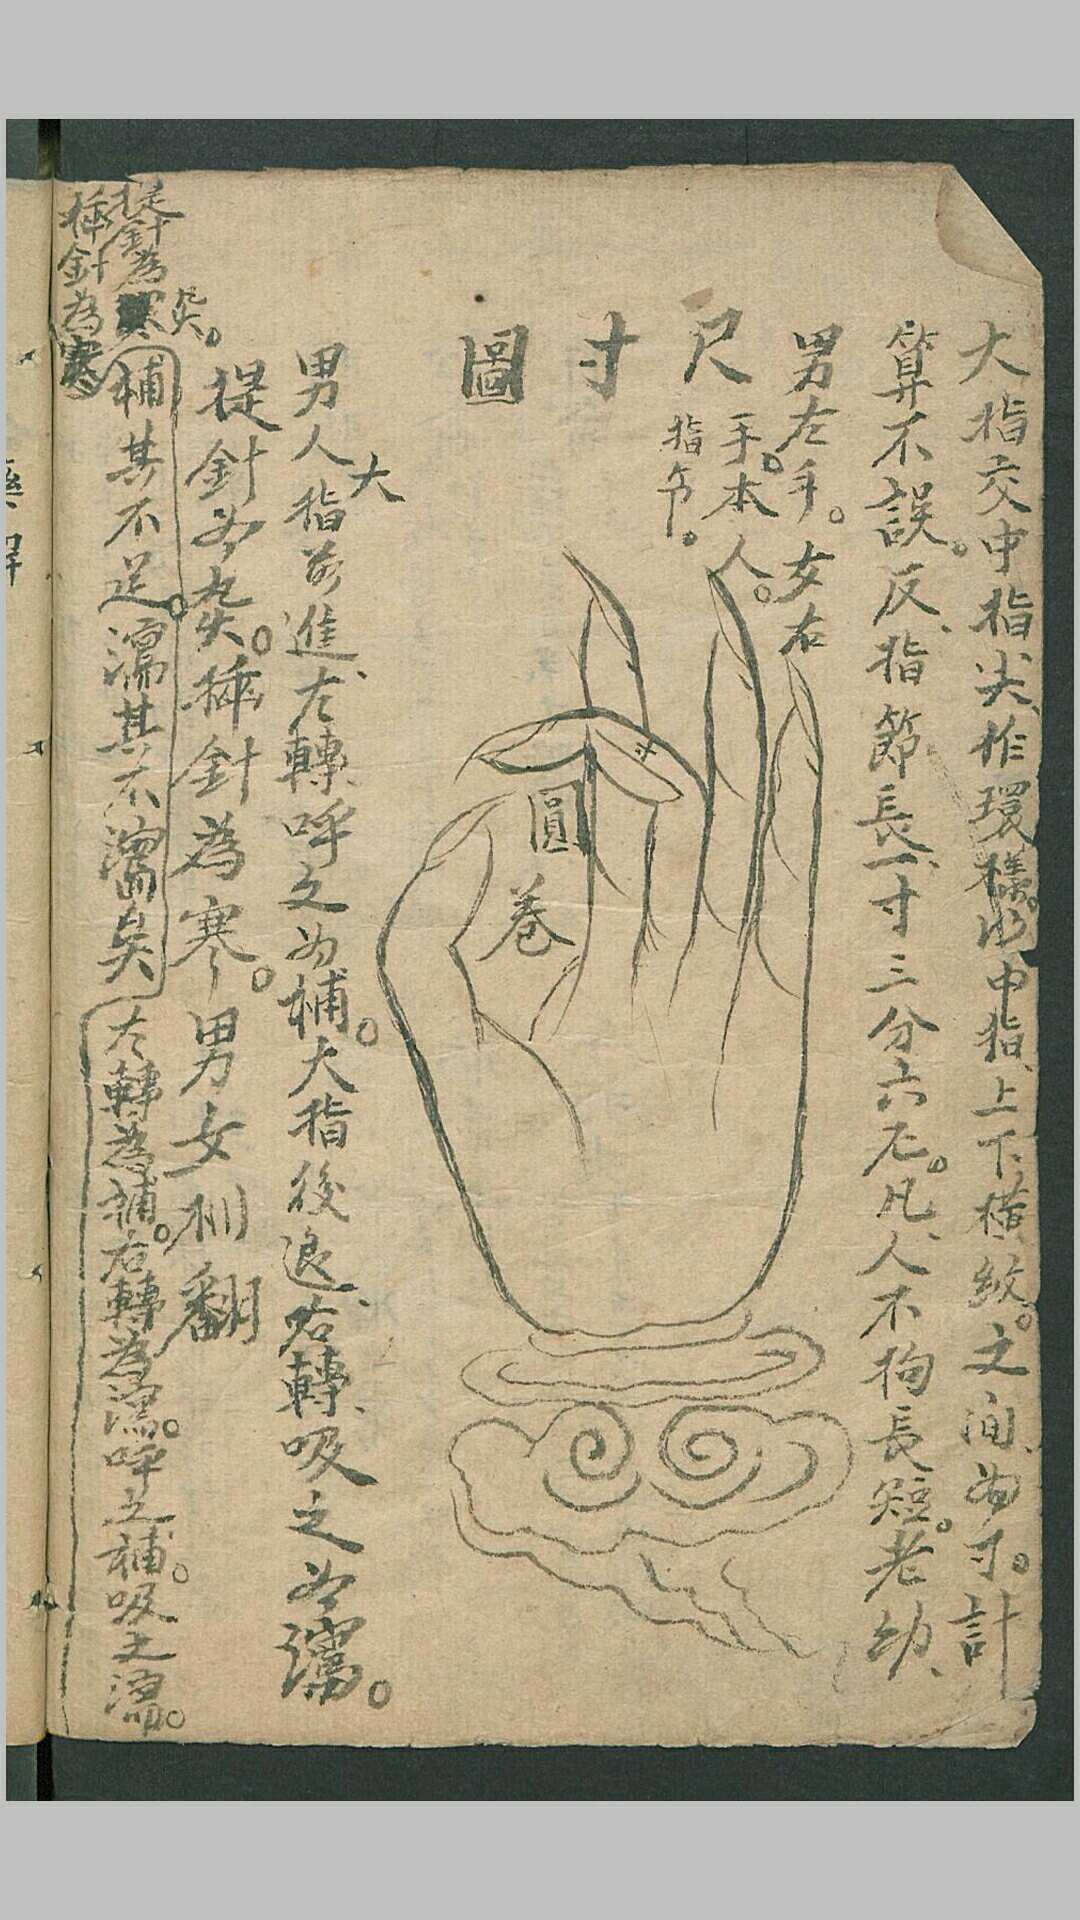 大指交中指尖作環樣以中指上下橫紋。之间为寸。計
算不誤。反指節長一寸三分六
凡人不拘長短。老幼
男左手。女右
手。本人。
指节。
尺寸圖
寸
圓
卷
男人大指前進左轉呼之为補。大指後退右轉吸之为瀉。
提針为热。插針為寒。男女相翻
補其不足。瀉其不
矣
左轉為補。右轉為瀉。呼之補。吸之瀉。
提針為
插針為寒